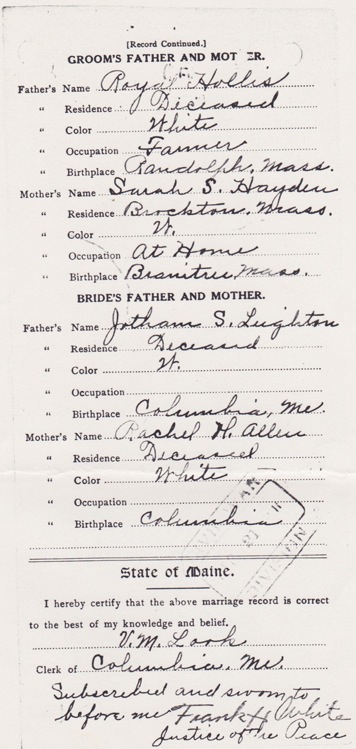 [Record Continued.]
GROOM'S FATHER AND MOTHER.
Father's Name Royal Hollis
" Residence Deceased
" Color White
" Occupation Farmer
" Birthplace Randolph, Mass.
Mother's Name Sarah S. Hayden
" Residence Brockton, Mass.
" Color W.
" Occupation At Home
" Birthplace Braintree, Mass.
BRIDE'S FATHER AND MOTHER.
Father's Name Jotham S. Leighton
" Residence Deceased
" Color W.
" Occupation
" Birthplace Columbia, Me.
Mother's Name Rachel H. Allen
" Residence Deceased
" Color White
" Occupation
" Birthplace Columbia
State of Maine.
I hereby certify that the above marriage record is correct
to the best of my knowledge and belief.
V.M. Look
Clerk of Columbia, Me.
Subscribed and sworn to
before me Frank H White
Justice of the Peace